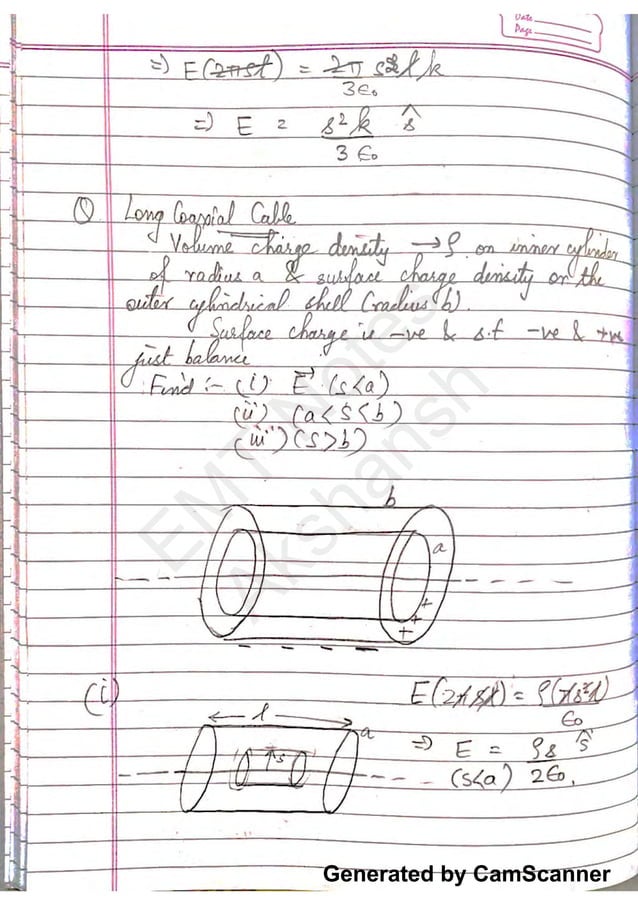 Date
Page
⇒ E(2πsl) = 2π s³ l k / 3ε₀
⇒ E = s²k / 3ε₀ ŝ
Q Long Coaxial Cable
Volume charge density → ρ on inner cylinder
of radius a & surface charge density on the
outer cylindrical shell (radius b).
Surface charge is -ve & s.t -ve & +ve
just balance
Find :- (i) E⃗ (s<a)
(ii) (a<s<b)
(iii) (s>b)
EMT Notes
Akshansh
b
a
+ + +
- - - -
(i)
E(2πsl) = ρ(πs²l) / ε₀
l
a
s
⇒ E = ρs / 2ε₀ ŝ
(s<a)
Generated by CamScanner